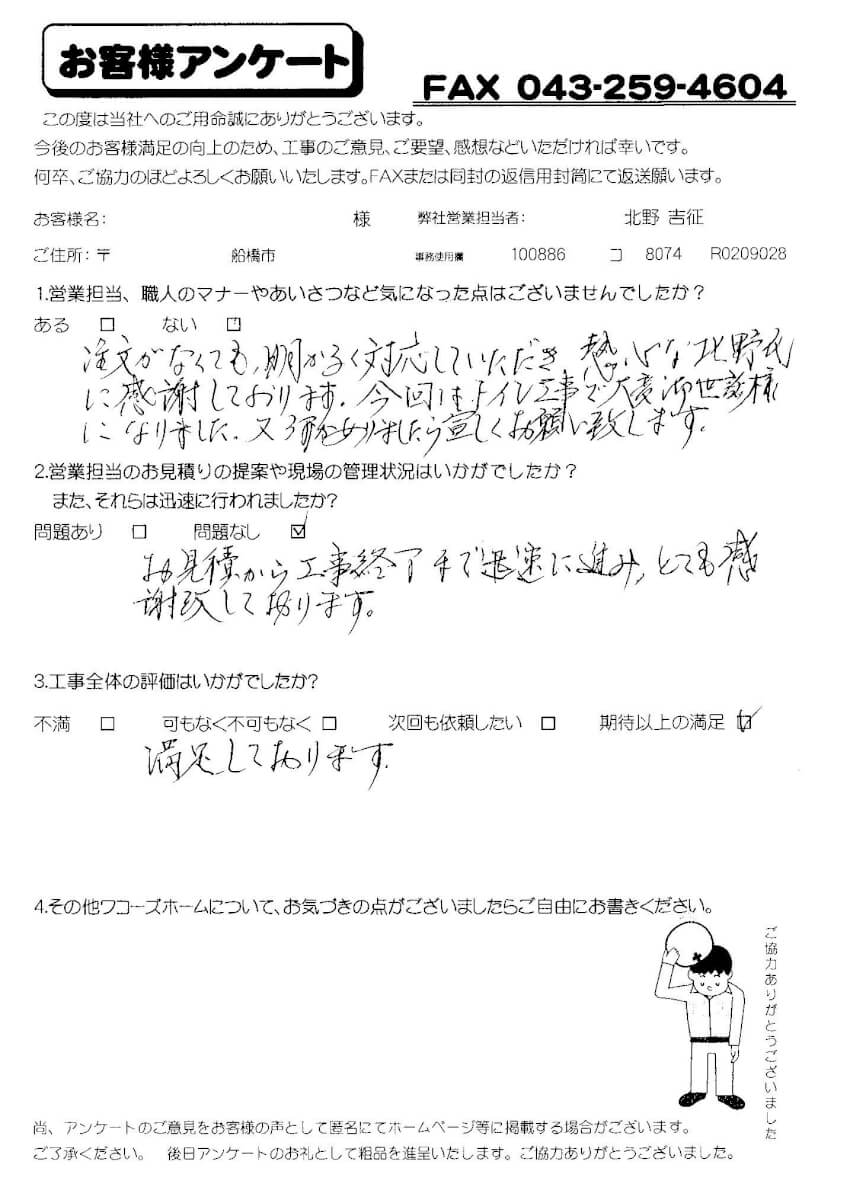 お客様アンケート
FAX 043-259-4604
この度は当社へのご用命誠にありがとうございます。
今後のお客様満足の向上のため、工事のご意見、ご要望、感想などいただければ幸いです。
何卒、ご協力のほどよろしくお願いいたします。FAXまたは同封の返信用封筒にて返送願います。
お客様名: 様 弊社営業担当者: 北野 吉征
ご住所:〒 船橋市 事務使用欄 100886 コ 8074 R0209028
1.営業担当、職人のマナーやあいさつなど気になった点はございませんでしたか?
ある □ ない □
注文がなくても、明かるく対応していただき 熱心な北野氏
に感謝しております。今回はトイレ工事で大変御世話様
になりました。又 ありましたら宜しくお願い致します。
2.営業担当のお見積りの提案や現場の管理状況はいかがでしたか?
また、それらは迅速に行われましたか?
問題あり □ 問題なし ☑
お見積から工事終了まで迅速に進み、とても感
謝致しております。
3.工事全体の評価はいかがでしたか?
不満 □ 可もなく不可もなく □ 次回も依頼したい □ 期待以上の満足 ☑
満足しております。
4.その他ワコーズホームについて、お気づきの点がございましたらご自由にお書きください。
ご協力ありがとうございました
尚、アンケートのご意見をお客様の声として匿名にてホームページ等に掲載する場合がございます。
ご了承ください。 後日アンケートのお礼として粗品を進呈いたします。ご協力ありがとうございました。